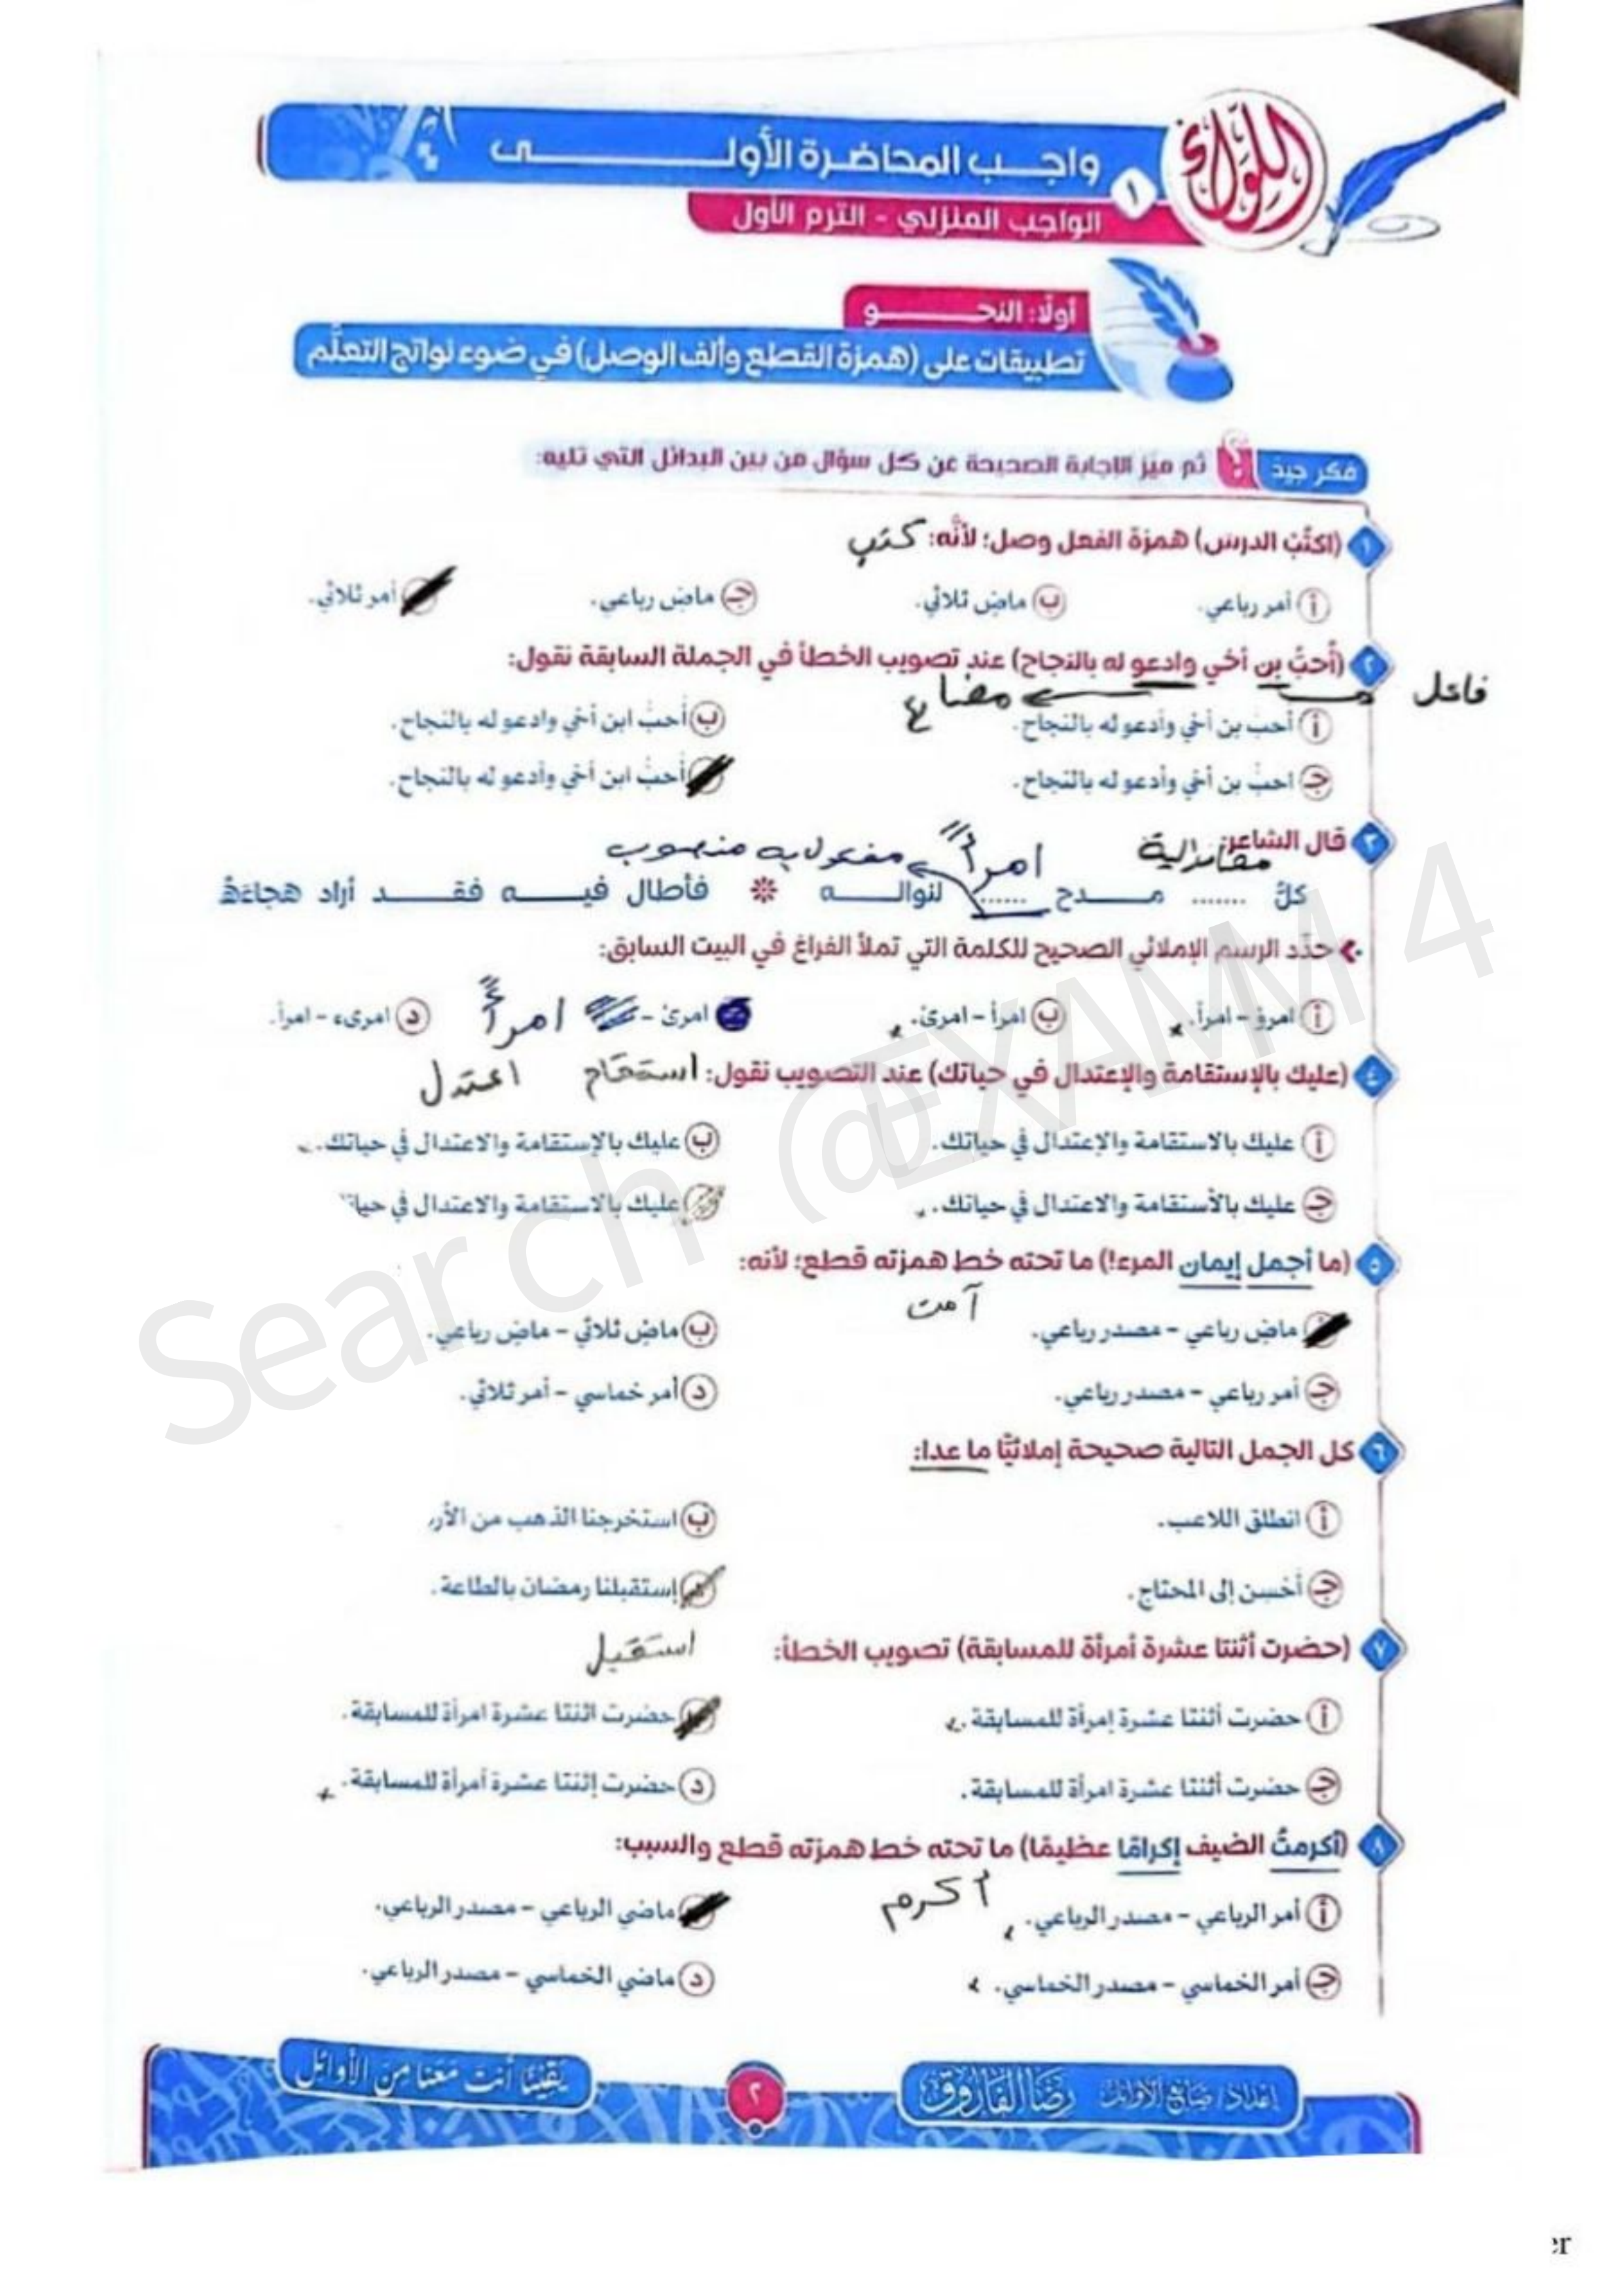 اللواء
١ واجـــب المحاضـرة الأولـــــى
الواجب المنزلي - الترم الأول
أولًا: النحـــــو
تطبيقات على (همزة القطع وألف الوصل) في ضوء نواتج التعلُّم
فكر جيدًا ثم ميّز الإجابة الصحيحة عن كل سؤال من بين البدائل التي تليه:
١ (اكتُبْ الدرس) همزة الفعل وصل؛ لأنَّه: كتب
أ أمر رباعي. ب ماضٍ ثلاثي. جـ ماضٍ رباعي. أمر ثلاثي.
٢ (أُحبُّ بن أخي وادعو له بالنجاح) عند تصويب الخطأ في الجملة السابقة نقول:
مضارع
أ أحب بن أخي وأدعو له بالنجاح. ب أُحبُ ابن أخي وادعو له بالنجاح.
جـ احبُ بن أخي وأدعو له بالنجاح. أُحبُ ابن أخي وأدعو له بالنجاح.
٣ قال الشاعر:
امرأً مفعول به منصوب
كلُّ ....... مـــدح ...... لنوالـــه ※ فأطال فيـــه فقـــد أراد هجاءَهُ
حدِّد الرسم الإملائي الصحيح للكلمة التي تملأ الفراغ في البيت السابق:
أ امرؤ - امرأ. ب امرأ - امرئ. امرئ - امرأً د امرىء - امرأ.
٤ (عليك بالإستقامة والإعتدال في حياتك) عند التصويب نقول: استقام اعتدل
أ عليك بالاستقامة والإعتدال في حياتك. ب عليك بالإستقامة والاعتدال في حياتك.
جـ عليك بالأستقامة والاعتدال في حياتك. عليك بالاستقامة والاعتدال في
٥ (ما أجمل إيمان المرء!) ما تحته خط همزته قطع؛ لأنه:
آمن
ماضٍ رباعي - مصدر رباعي. ب ماضٍ ثلاثي - ماضٍ رباعي.
جـ أمر رباعي - مصدر رباعي. د أمر خماسي - أمر ثلاثي.
٦ كل الجمل التالية صحيحة إملائيًّا ما عدا:
أ انطلق اللاعب. ب استخرجنا الذهب من
جـ أحْسِن إلى المحتاج. إستقبلنا رمضان بالطاعة.
استقبل
٧ (حضرت أثنتا عشرة أمرأة للمسابقة) تصويب الخطأ:
أ حضرت أثنتا عشرة إمرأة للمسابقة. حضرت اثنتا عشرة امرأة للمسابقة.
جـ حضرت أثنتا عشرة امرأة للمسابقة. د حضرت إثنتا عشرة أمرأة للمسابقة.
٨ (أكرمتُ الضيف إكرامًا عظيمًا) ما تحته خط همزته قطع والسبب:
أكرم
أ أمر الرباعي - مصدر الرباعي. ماضي الرباعي - مصدر الرباعي.
جـ أمر الخماسي - مصدر الخماسي. د ماضي الخماسي - مصدر الرباعي.
إعداد/ صانع الأوائل رضا الفاروق
٢
يقينًا أنت معنا من الأوائل
Search @EXAMM4